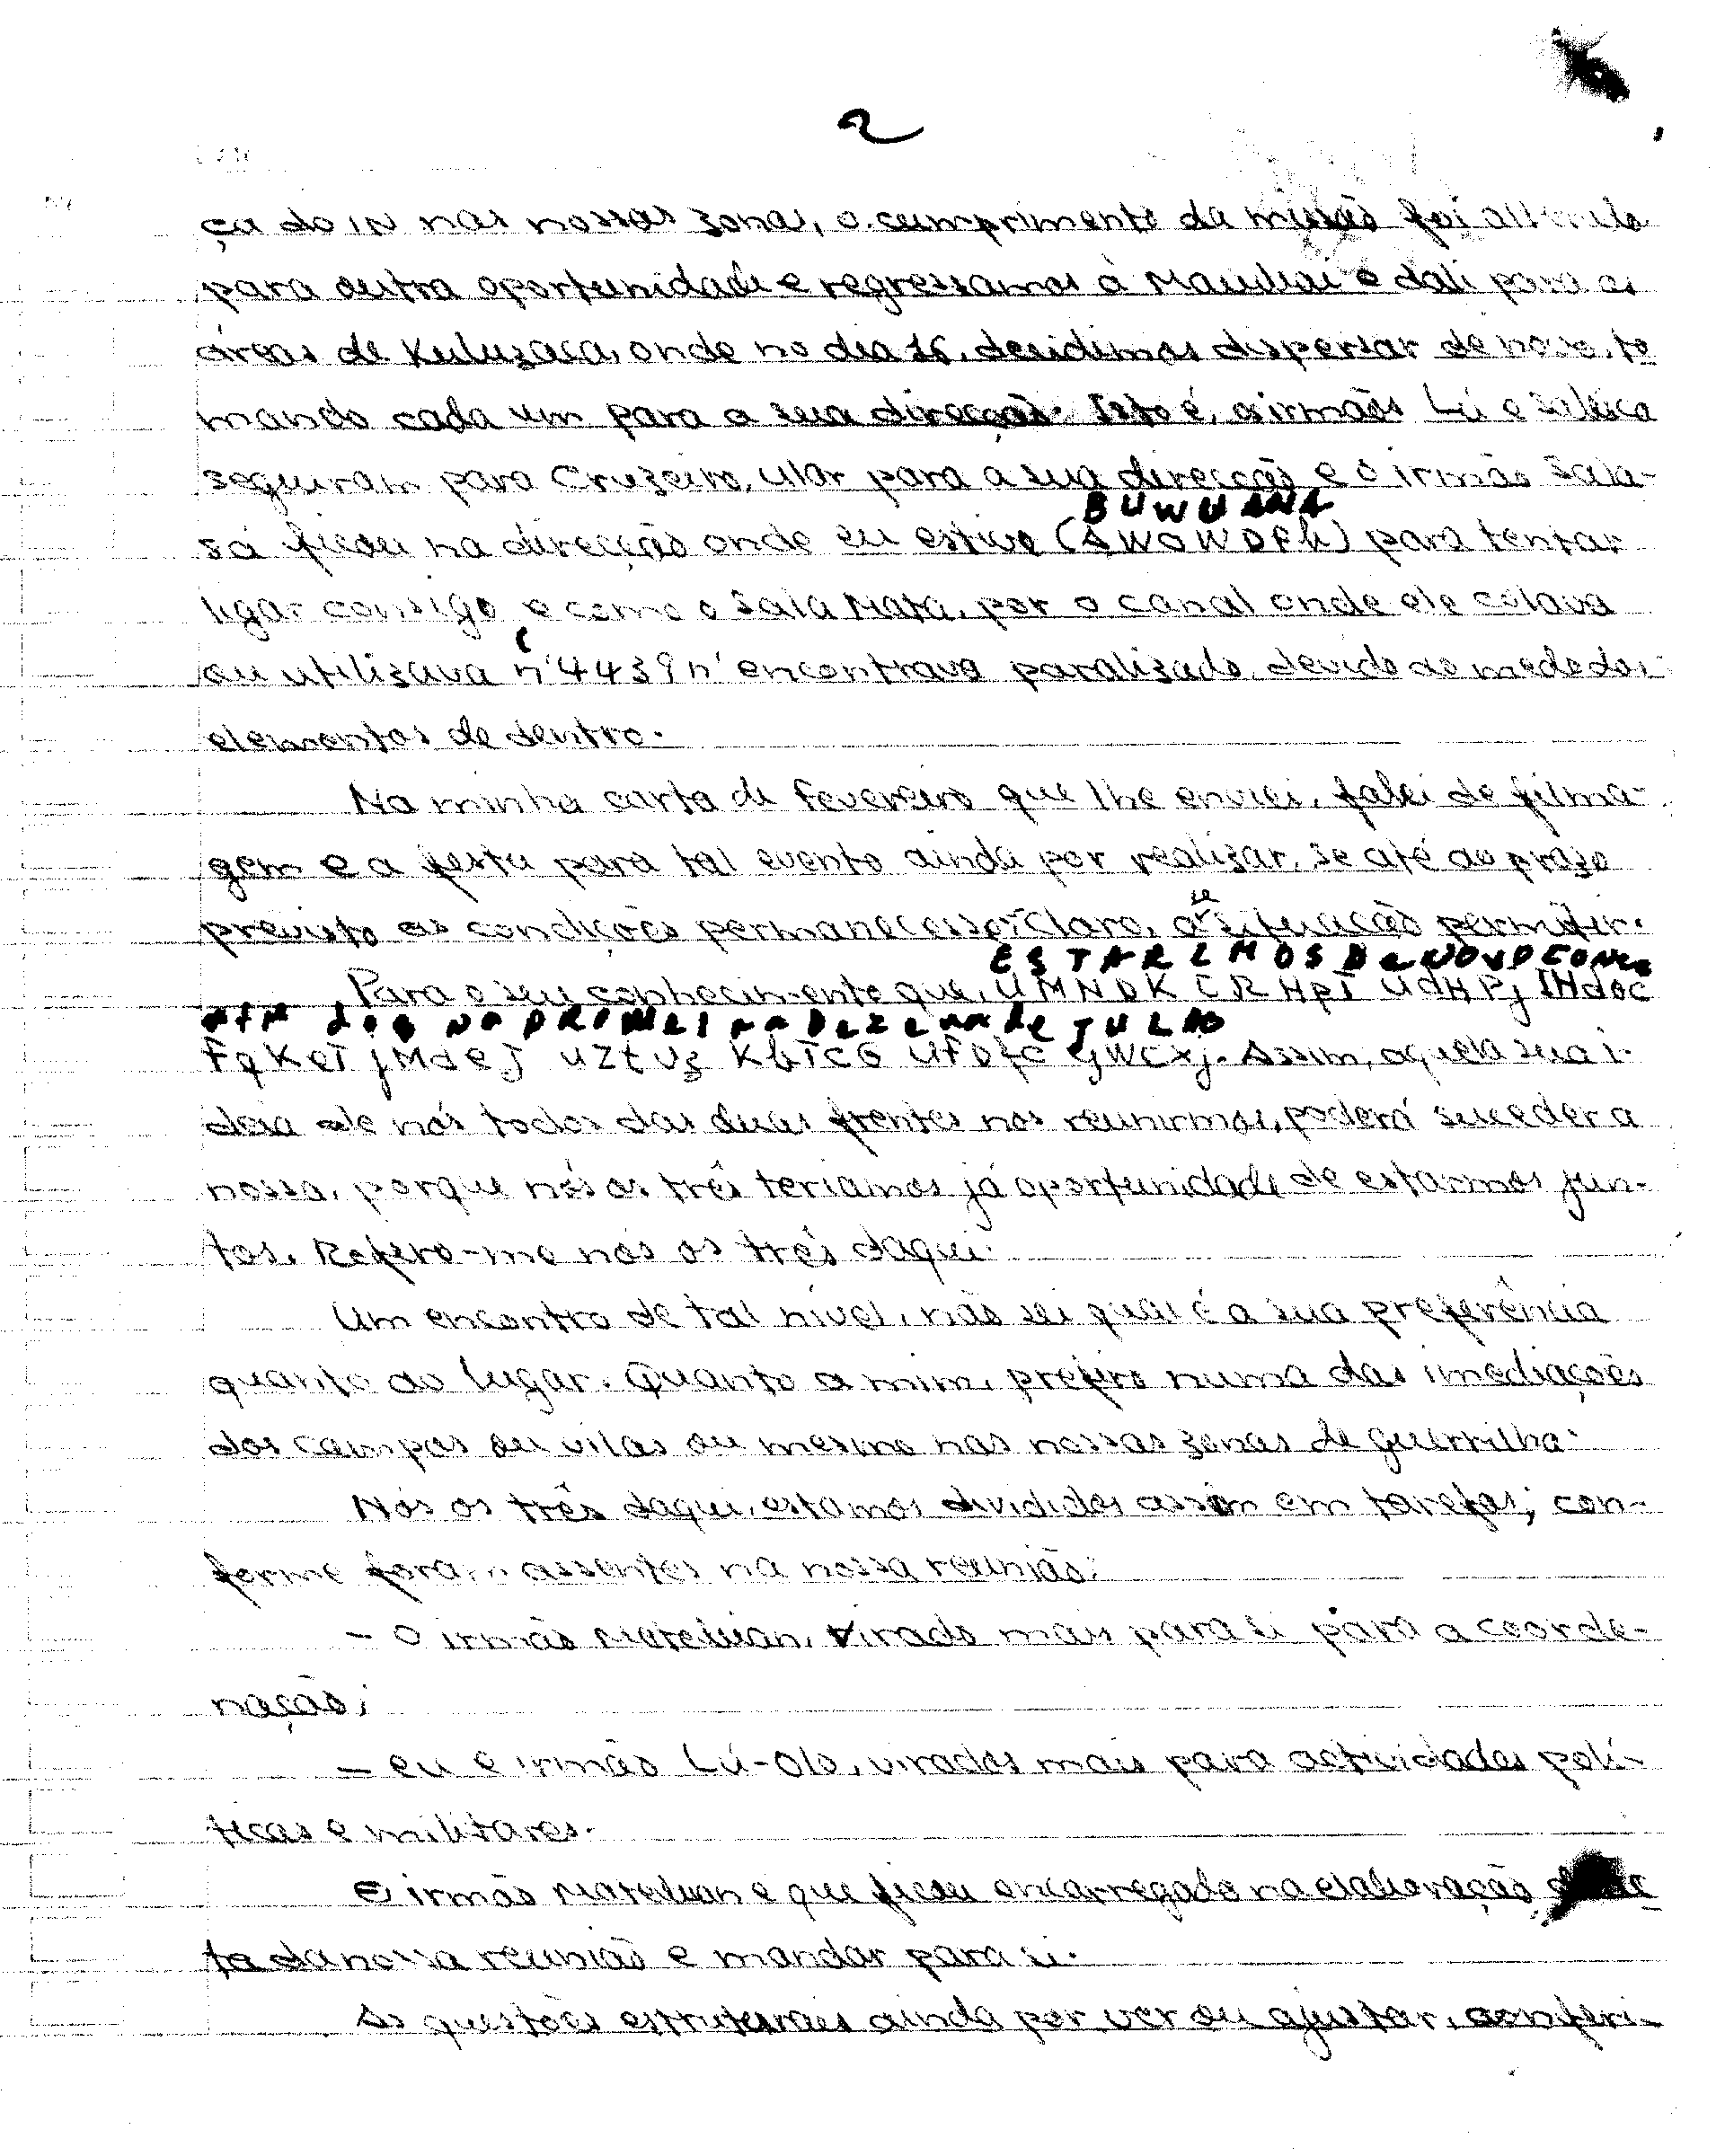 2
ça do IN nas nossas zonas, o cumprimento da missão foi
para outra oportunidade e regressamos à Mauchai e dali para as
áreas de Kuluzaca, onde no dia 16, decidimos dispersar de novo, to
mando cada um para a sua direcção. Isto é, os irmãos Lú e
seguiram para Cruzeiro, Ular para a sua direcção e o irmão Sala-
BUWUANA
sa ficou na direcção onde eu estive (AWOWDPh) para tentar
ligar consigo e como o Sala Mata, por o canal onde ele colava
ou utilizava n'4439n' encontrava paralizado devido ao medo dos
elementos de dentro.
Na minha carta de Fevereiro que lhe enviei, falei de filma-
gem e a festa para tal evento ainda por realizar, se até ao prazo
se
previsto as condições permanecessem claro, a situação permitir.
ESTAREMOS DE NOVO CONCE
Para o seu conhecimento que, UMNDK CRHpT UdHPj IHdoC
DOS NA PRIMEIRA DEZENA de JULHO
FqKeT jMdeJ uZtVz KbTcG UFDfC yWCxj. Assim, aquela sua i-
deia de nós todos das duas frentes nos reunirmos, poderá suceder a
nossa, porque nós os três teriamos já oportunidade de estarmos jun-
tos. Refero-me nós os três daqui.
Um encontro de tal nível, não sei qual é a sua preferência
quanto ao lugar. Quanto a mim, prefiro numa das imediações
dos campos ou vilas ou mesmo nas nossas zonas de guerrilha.
Nós os três daqui, estamos divididos assim em tarefas, con-
forme foram assentes na nossa reunião:
- O irmão Matehuan, virado mais para si para a coorde-
nação;
- eu e irmão Lú-Olo, virados mais para actividades polí-
ticas e militares.
O irmão Matehuan é que ficou encarregado na elaboração
ta da nossa reunião e mandar para si.
As questões estruturais ainda por ver ou ajustar,